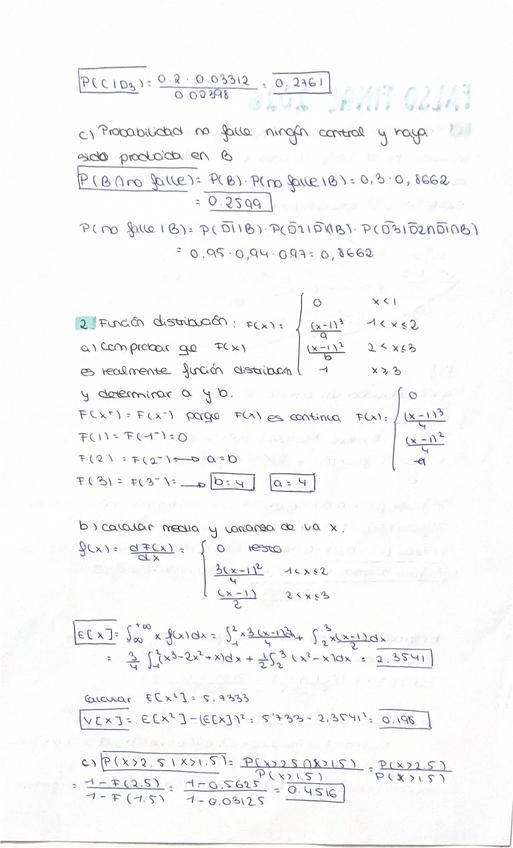 P(C|D3) = 0.2 · 0.03312 / 0.02398 = 0.2761
c) Probabilidad no falle ningún control y haya
sido producida en B
P(B∩no falle) = P(B) · P(no falle|B) = 0,3 · 0,8662
= 0.2599
P(no falle|B) = P(D̄1|B) · P(D̄2|D̄1∩B) · P(D̄3|D̄2∩D̄1∩B)
= 0.95 · 0,94 · 0.97 = 0,8662
2. Función distribución: F(x) = { 0 x<1
(x-1)³/a 1<x≤2
a) Comprobar que F(x) (x-1)²/b 2<x≤3
es realmente función distribucion 1 x≥3
y determinar a y b.
F(x⁺) = F(x⁻) porque F(x) es continua F(x) = { 0
(x-1)³/4
F(1) = F(1⁻) = 0 (x-1)²/4
F(2) = F(2⁻) → a=b 1
F(3) = F(3⁻) = → b=4 a=4
b) calcular media y varianza de va x.
f(x) = dF(x)/dx = { 0 resto
3(x-1)²/4 1<x≤2
(x-1)/2 2<x≤3
E[x] = ∫∞^+∞ x f(x)dx = ∫1^2 x 3(x-1)²/4 + ∫2^3 x(x-1)/2 dx
= 3/4 ∫1^2 (x³-2x²+x)dx + 1/2 ∫2^3 (x²-x)dx = 2.3541
Calcular E[x²] = 5,7333
V[x] = E[x²] - (E[x])² = 5'733 - 2,3541² = 0.195
c) P(x>2.5|x>1.5) = P(x>2.5∩x>1.5) / P(x>1.5) = P(x>2.5) / P(x>1.5)
= 1-F(2.5) / 1-F(1.5) = 1-0.5625 / 1-0.03125 = 0.4516